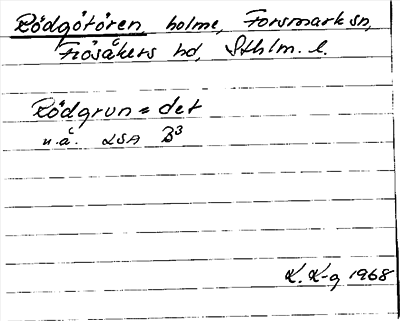 Rödgötören, holme, Forsmark sn,
Frösåkers hd, Sthlm. l.
Rödgrun = det
u.å. LSA B³
K. K-g 1968